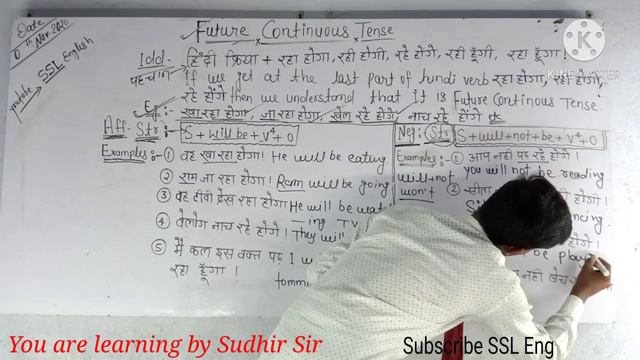 Date
Nov. 2020
youtube → SSL English
Future Continuous Tense
Idd- हिंदी क्रिया + रहा होगा, रही होगी, रहे होंगे, रही हूँगी, रहा हूँगा।
पहचान
If we get at the last part of hindi verb रहा होगा, रही होगी,
रहे होंगे then we understand that it is Future Continous Tense
Eg. खा रहा होगा, जा रहा होगा, खेल रहे होंगे, नाच रहे होंगे etc
Aff- Str:- S + will be + V⁴ + O
Examples:- ① वह खा रहा होगा। He will be eating.
② राम जा रहा होगा। Ram will be going
③ वह टीवी देख रहा होगा He will be wat
-ing TV
④ वे लोग नाच रहे होंगे। They will
⑤ मैं कल इस वक्त पढ़ I w
रहा हूँगा। tomm
Neg: Str: S + will + not + be + V⁴ + O
Examples:- ① आप नहीं पढ़ रहे होंगे।
will not you will not be reading
won't ② होगी।
ncing.
होंगे।
be play
नहीं बेच
You are learning by Sudhir Sir
Subscribe SSL Eng